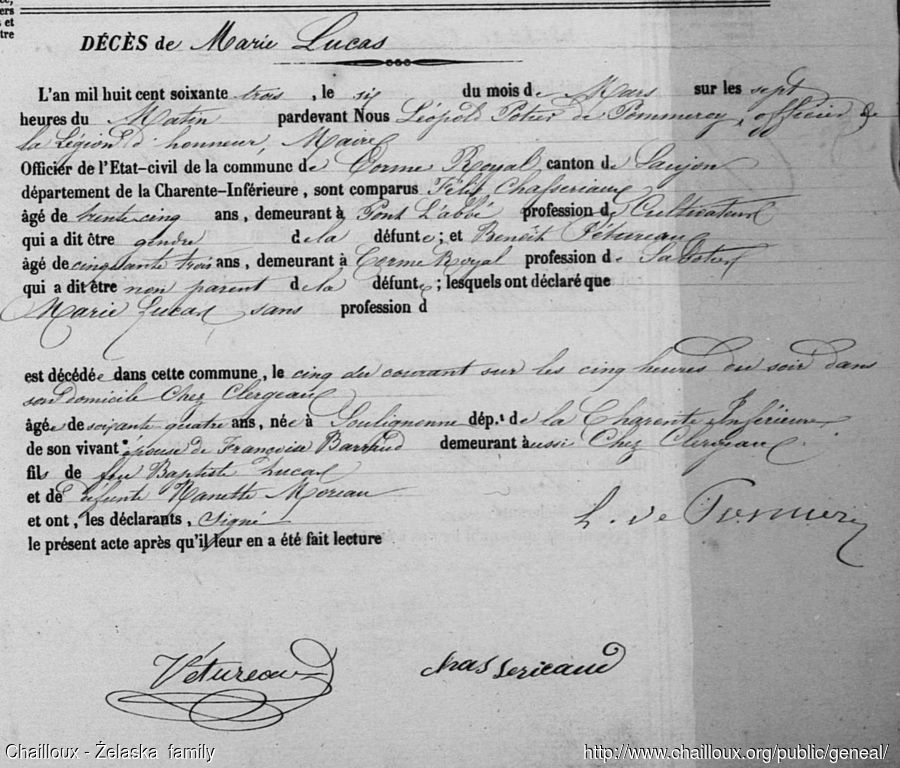 ers
s et
tre
DÉCÈS de Marie Lucas
L'an mil huit cent soixante trois, le six du mois de Mars sur les sept
heures du Matin pardevant Nous Léopold Potier de Pommeroy, officier de
la Légion d'honneur, Maire
Officier de l'Etat-civil de la commune de Corme Royal canton de Saujon
département de la Charente-Inférieure, sont comparus Félix Chasseriaux
âgé de trente cinq ans, demeurant à Pont L'abbé profession de Cultivateur
qui a dit être gendre de la défunte; et Benoit Vétureau
âgé de cinquante trois ans, demeurant à Corme Royal profession de Sabotier
qui a dit être non parent de la défunte; lesquels ont déclaré que
Marie Lucas sans profession d
est décédée dans cette commune, le cinq du courant sur les cinq heures du soir dans
son domicile Chez Clergeau
âgée de soixante quatre ans, née à Soulignonne dép.t de la Charente Inférieure
de son vivant épouse de Françoise Barraud demeurant aussi Chez Clergeau.
fils de feu Baptiste Lucas
et de défunte Nanette Moreau
et ont, les déclarants, signé
le présent acte après qu'il leur en a été fait lecture
L. de Pommeroy
Vétureau chasseriaud
Chailloux - Želaska family http://www.chailloux.org/public/geneal/